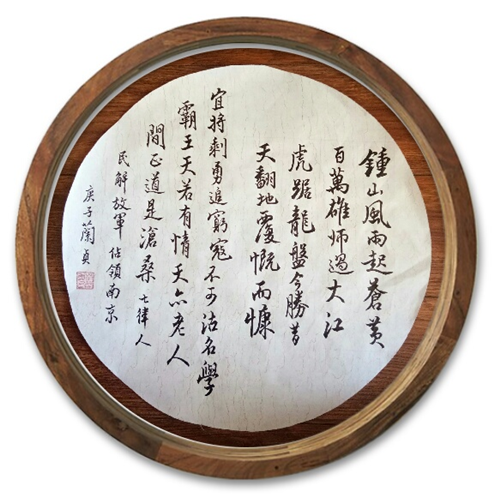 鍾山風雨起蒼黃
百萬雄師過大江
虎踞龍盤今勝昔
天翻地覆慨而慷
宜將剩勇追窮寇不可沽名學
霸王天若有情天亦老人
間正道是滄桑 七律 人
民解放軍佔領南京
庚子蘭貞